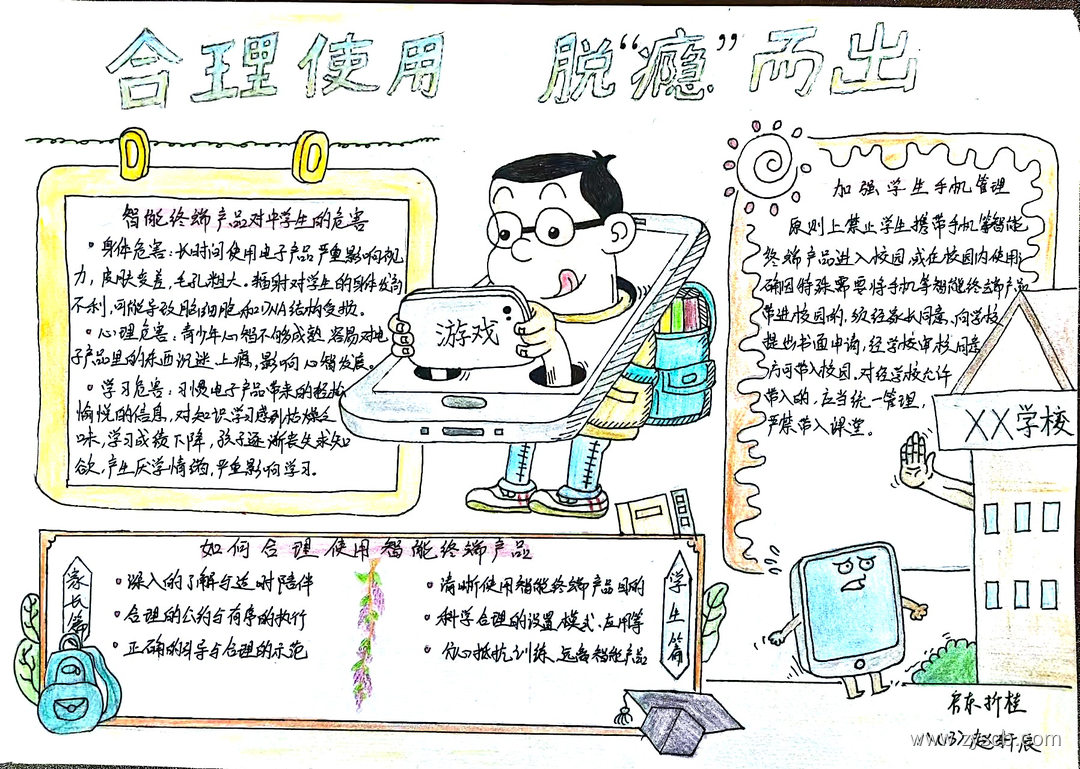 合理使用 脱“瘾”而出
智能终端产品对中学生的危害
•身体危害：长时间使用电子产品严重影响视
力，皮肤变差，毛孔粗大。辐射对学生的身体发育
不利，可能导致脑细胞和DNA结构受损。
•心理危害：青少年心智不够成熟，容易对电
子产品里的东西沉迷上瘾，影响心智发展。
•学习危害：习惯电子产品带来的轻松
愉悦的信息，对知识学习感到枯燥乏
味，学习成绩下降，孩子逐渐丧失求知
欲，产生厌学情绪，严重影响学习。
游戏
加强学生手机管理
原则上禁止学生携带手机等智能
终端产品进入校园，或在校园内使用；
确因特殊需要将手机等智能终端产品
带进校园的，须经家长同意、向学校
提出书面申请，经学校审核同意
后可带入校园。对经学校允许
带入的，应当统一管理，
严禁带入课堂。
XX学校
如何合理使用智能终端产品
家长篇
•深入的了解与适时陪伴
•合理的公约与有序的执行
•正确的引导与合理的示范
学生篇
•清晰使用智能终端产品目的
•科学合理的设置模式、应用等
•分心抵抗训练、远离智能产品
启东折桂